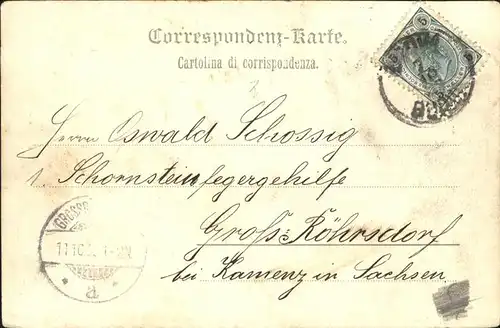 Correspondenz-Karte.
Cartolina di corrispondenza.
5
Herrn Oswald Schossig
1. Schornsteinfegergehilfe
Groß-Röhrsdorf
bei Kamenz in Sachsen
GROSSR
11 10
a